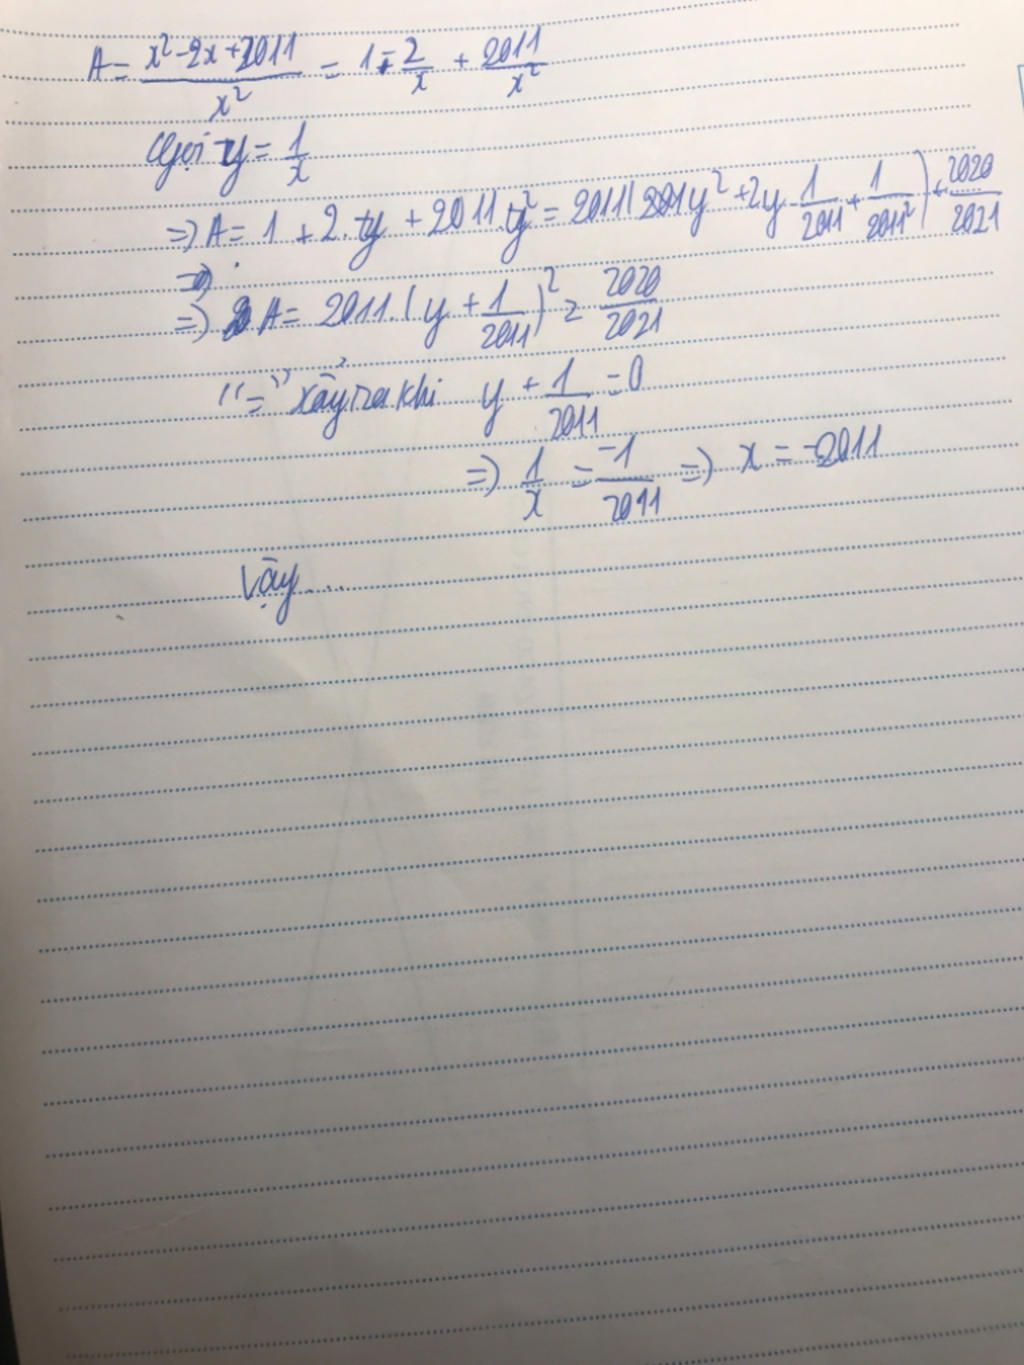 A = (x² - 2x + 2011)/x² = 1 + 2/x + 2011/x²
Gọi y = 1/x
=> A = 1 + 2.y + 2011.y² = 2011(201y² + 2y.1/2011 + 1/2011²) + 2020/2021
=>
=> A = 2011.(y + 1/2011)² ≥ 2020/2021
"=" xảy ra khi y + 1/2011 = 0
=> 1/x = -1/2011 => x = -2011
Vậy...